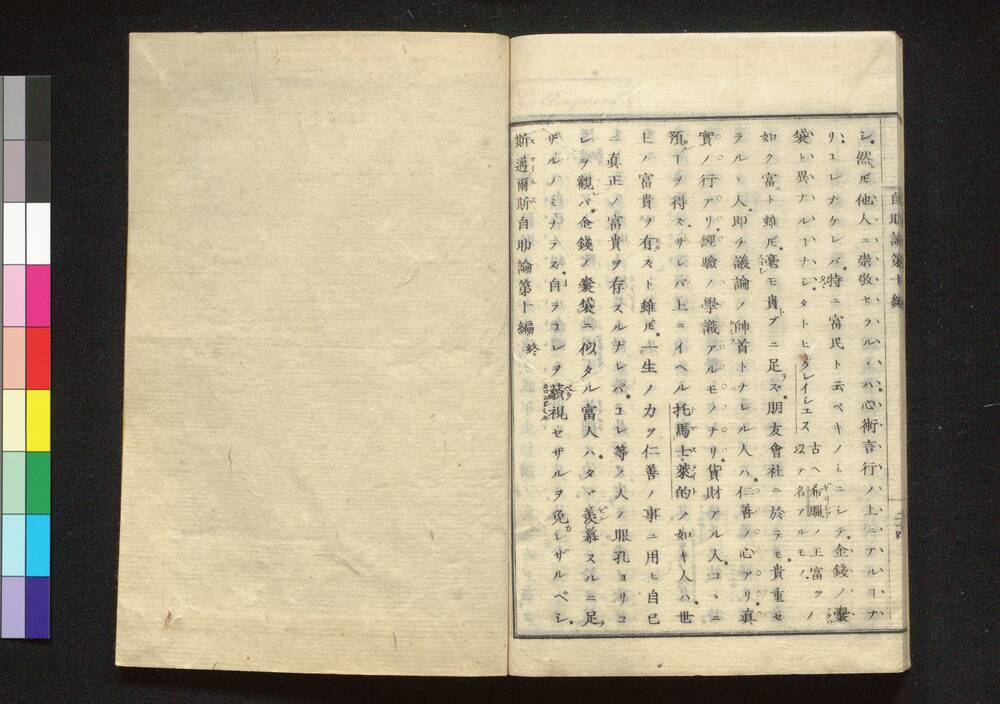 シ。然𪜈他人ニ崇敬セラルヽハ心術言行ノ上ニアルヿナ
リ。コレナケレバ。特ニ富民ト云ベキノミニシテ。金錢ノ嚢
袋ト異ナルヿナシ。タトヒクレイシュス古ヘ希臘ノ王富ヲ以テ名アルモノ。ノ
如ク富ト雖𪜈。毫モ貴ブニ足ラズ。朋友會社ニ於テモ。貴重セ
ラルヽ人。即チ議論ノ帥首トナレル人ハ。仁善ノ心アリ。真
實ノ行アリ。經驗ノ學識アルモノナリ。貨財アル人。コヽニ
預ルヿヲ得ズ。サレバ上ニイヘル托馬士萊的ノ如キ人ハ。世
上ノ富貴ヲ有スト雖𪜈。一生ノ力ヲ仁善ノ事ニ用ヒ自己
ノ真正ノ富貴ヲ存スルナレバ。コレ等ノ人ノ眼孔ヨリコ
レヲ觀レバ。金錢ノ嚢袋ニ似タル富人ハ。タヾ羨慕スルニ足
ザルノミナラズ。自ラコレヲ藐視セザルヲ免レザルベシ。
斯邁爾斯自助論第十編 終
自助論第十編
二十四